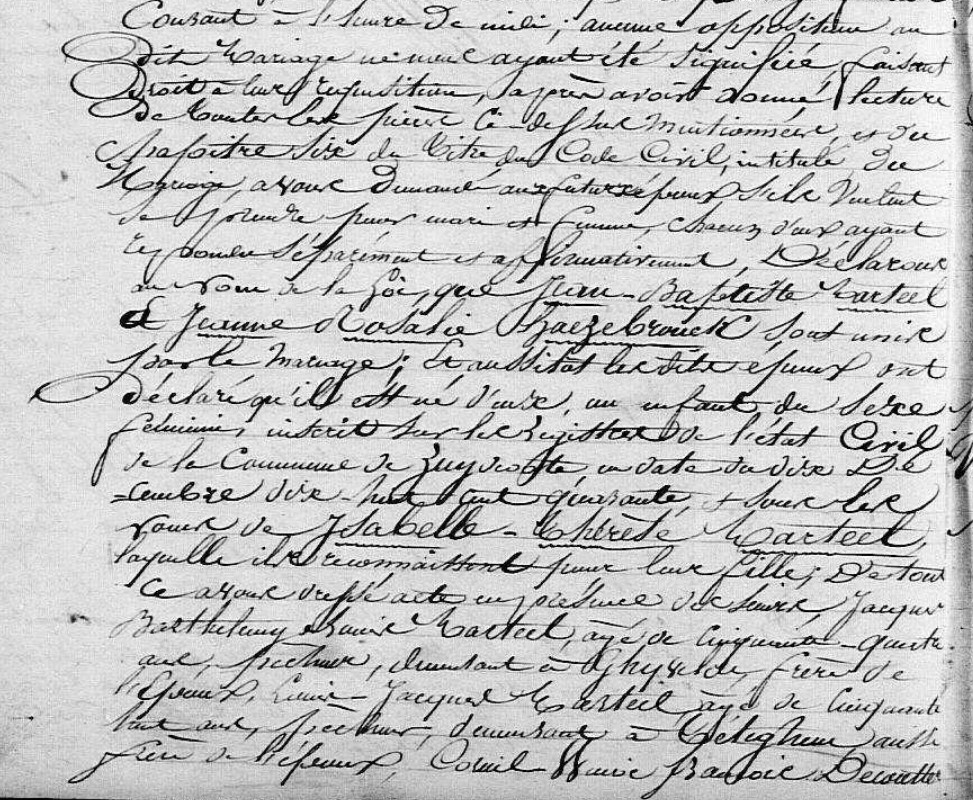 Courant à l'heure de midi; aucune opposition au
dit Mariage ne nous ayant été signifiée, faisant
Droit à leur réquisition, après avoir donné lecture
De toutes les pièces ci-dessus mentionnées, et du
chapitre Six du Titre du Code Civil, intitulé, Du
Mariage, avons Demandé aux futurs époux S'ils Veulent
se prendre pour mari et femme, chacun d'eux ayant
répondu Séparément et affirmativement, Déclarons
au nom de la Loi, que Jean-Baptiste Marteel
et Jeanne Rosalie Haezebrouck sont unis
par le Mariage; Et aussitôt les dits époux ont
déclaré qu'il est né d'eux, un enfant du sexe
féminin, inscrit sur les registres de l'état Civil
de la Commune de Zuydcoote en date du dix Dé
-cembre dix-huit cent quarante, et sous les
noms de Isabelle-Thérèse Marteel,
laquelle ils reconnaissent pour leur fille; De tout
Ce avons dressé acte en présence des sieurs Jacques
Barthelemy Marteel, âgé de Cinquante-quatre
ans, pêcheur, demeurant à Ghyvelde, frère de
l'Epoux, Louis-Jacques Marteel, âgé de Cinquante
huit ans, pêcheur, demeurant à Téteghem aussi
frère de l'époux, Cornil Winoc François Decoutter